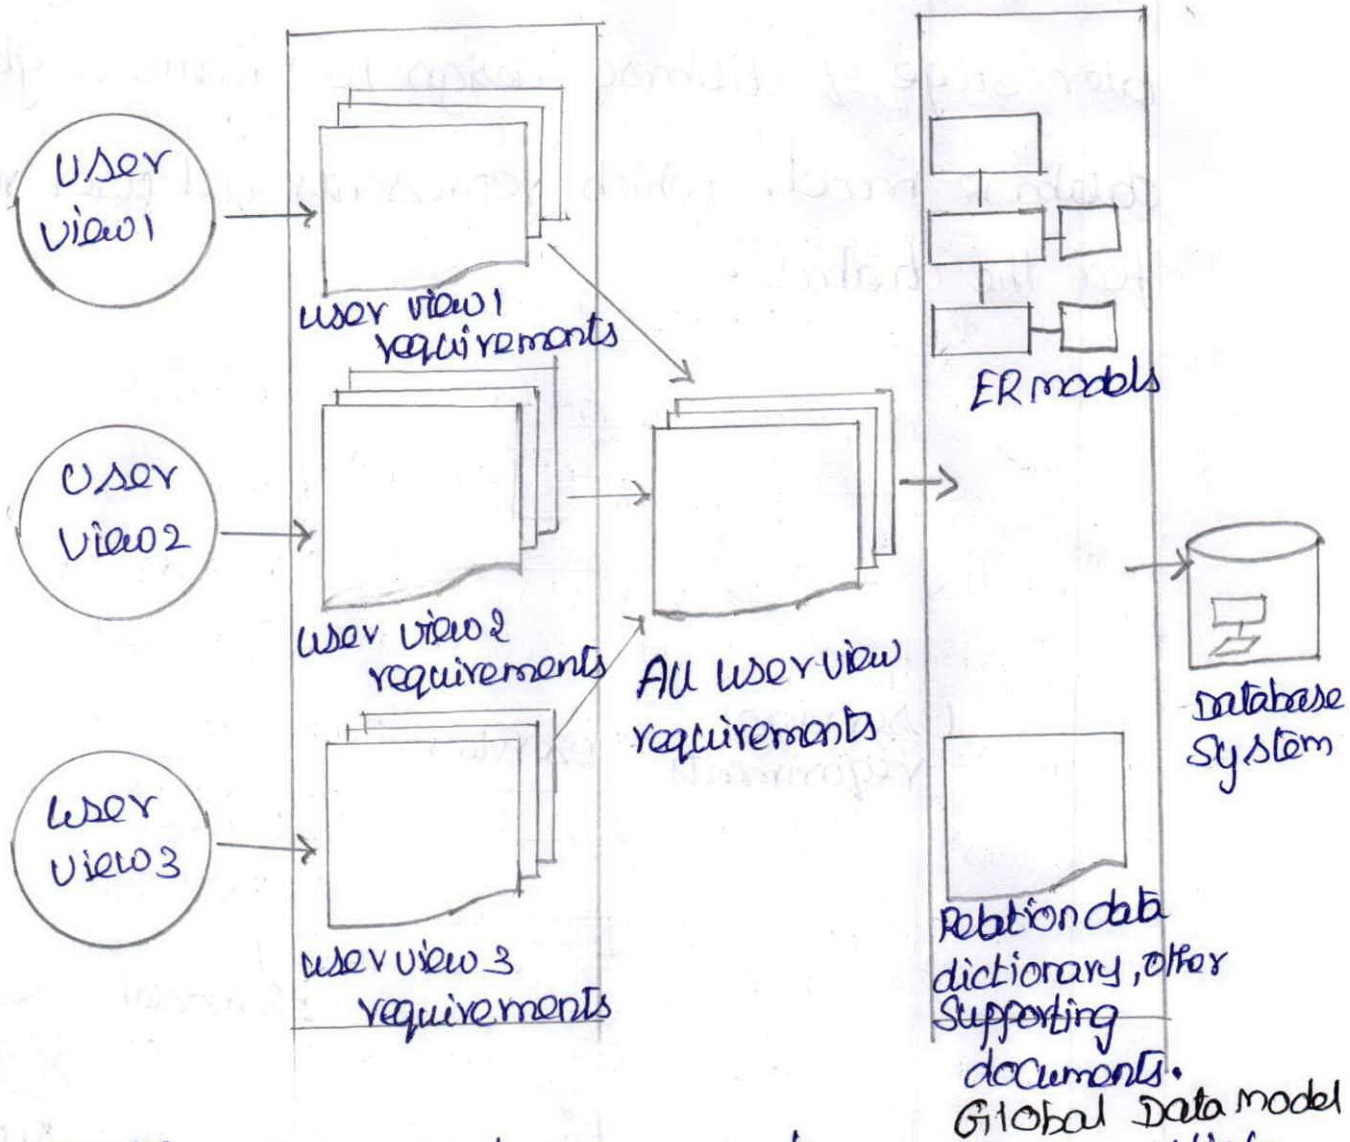 User
view1
user view1
requirements
User
view2
user view2
requirements
User
view3
user view3
requirements
All user view
requirements
ER models
Relation data
dictionary, other
supporting
documents.
Global Data Model
Database
System